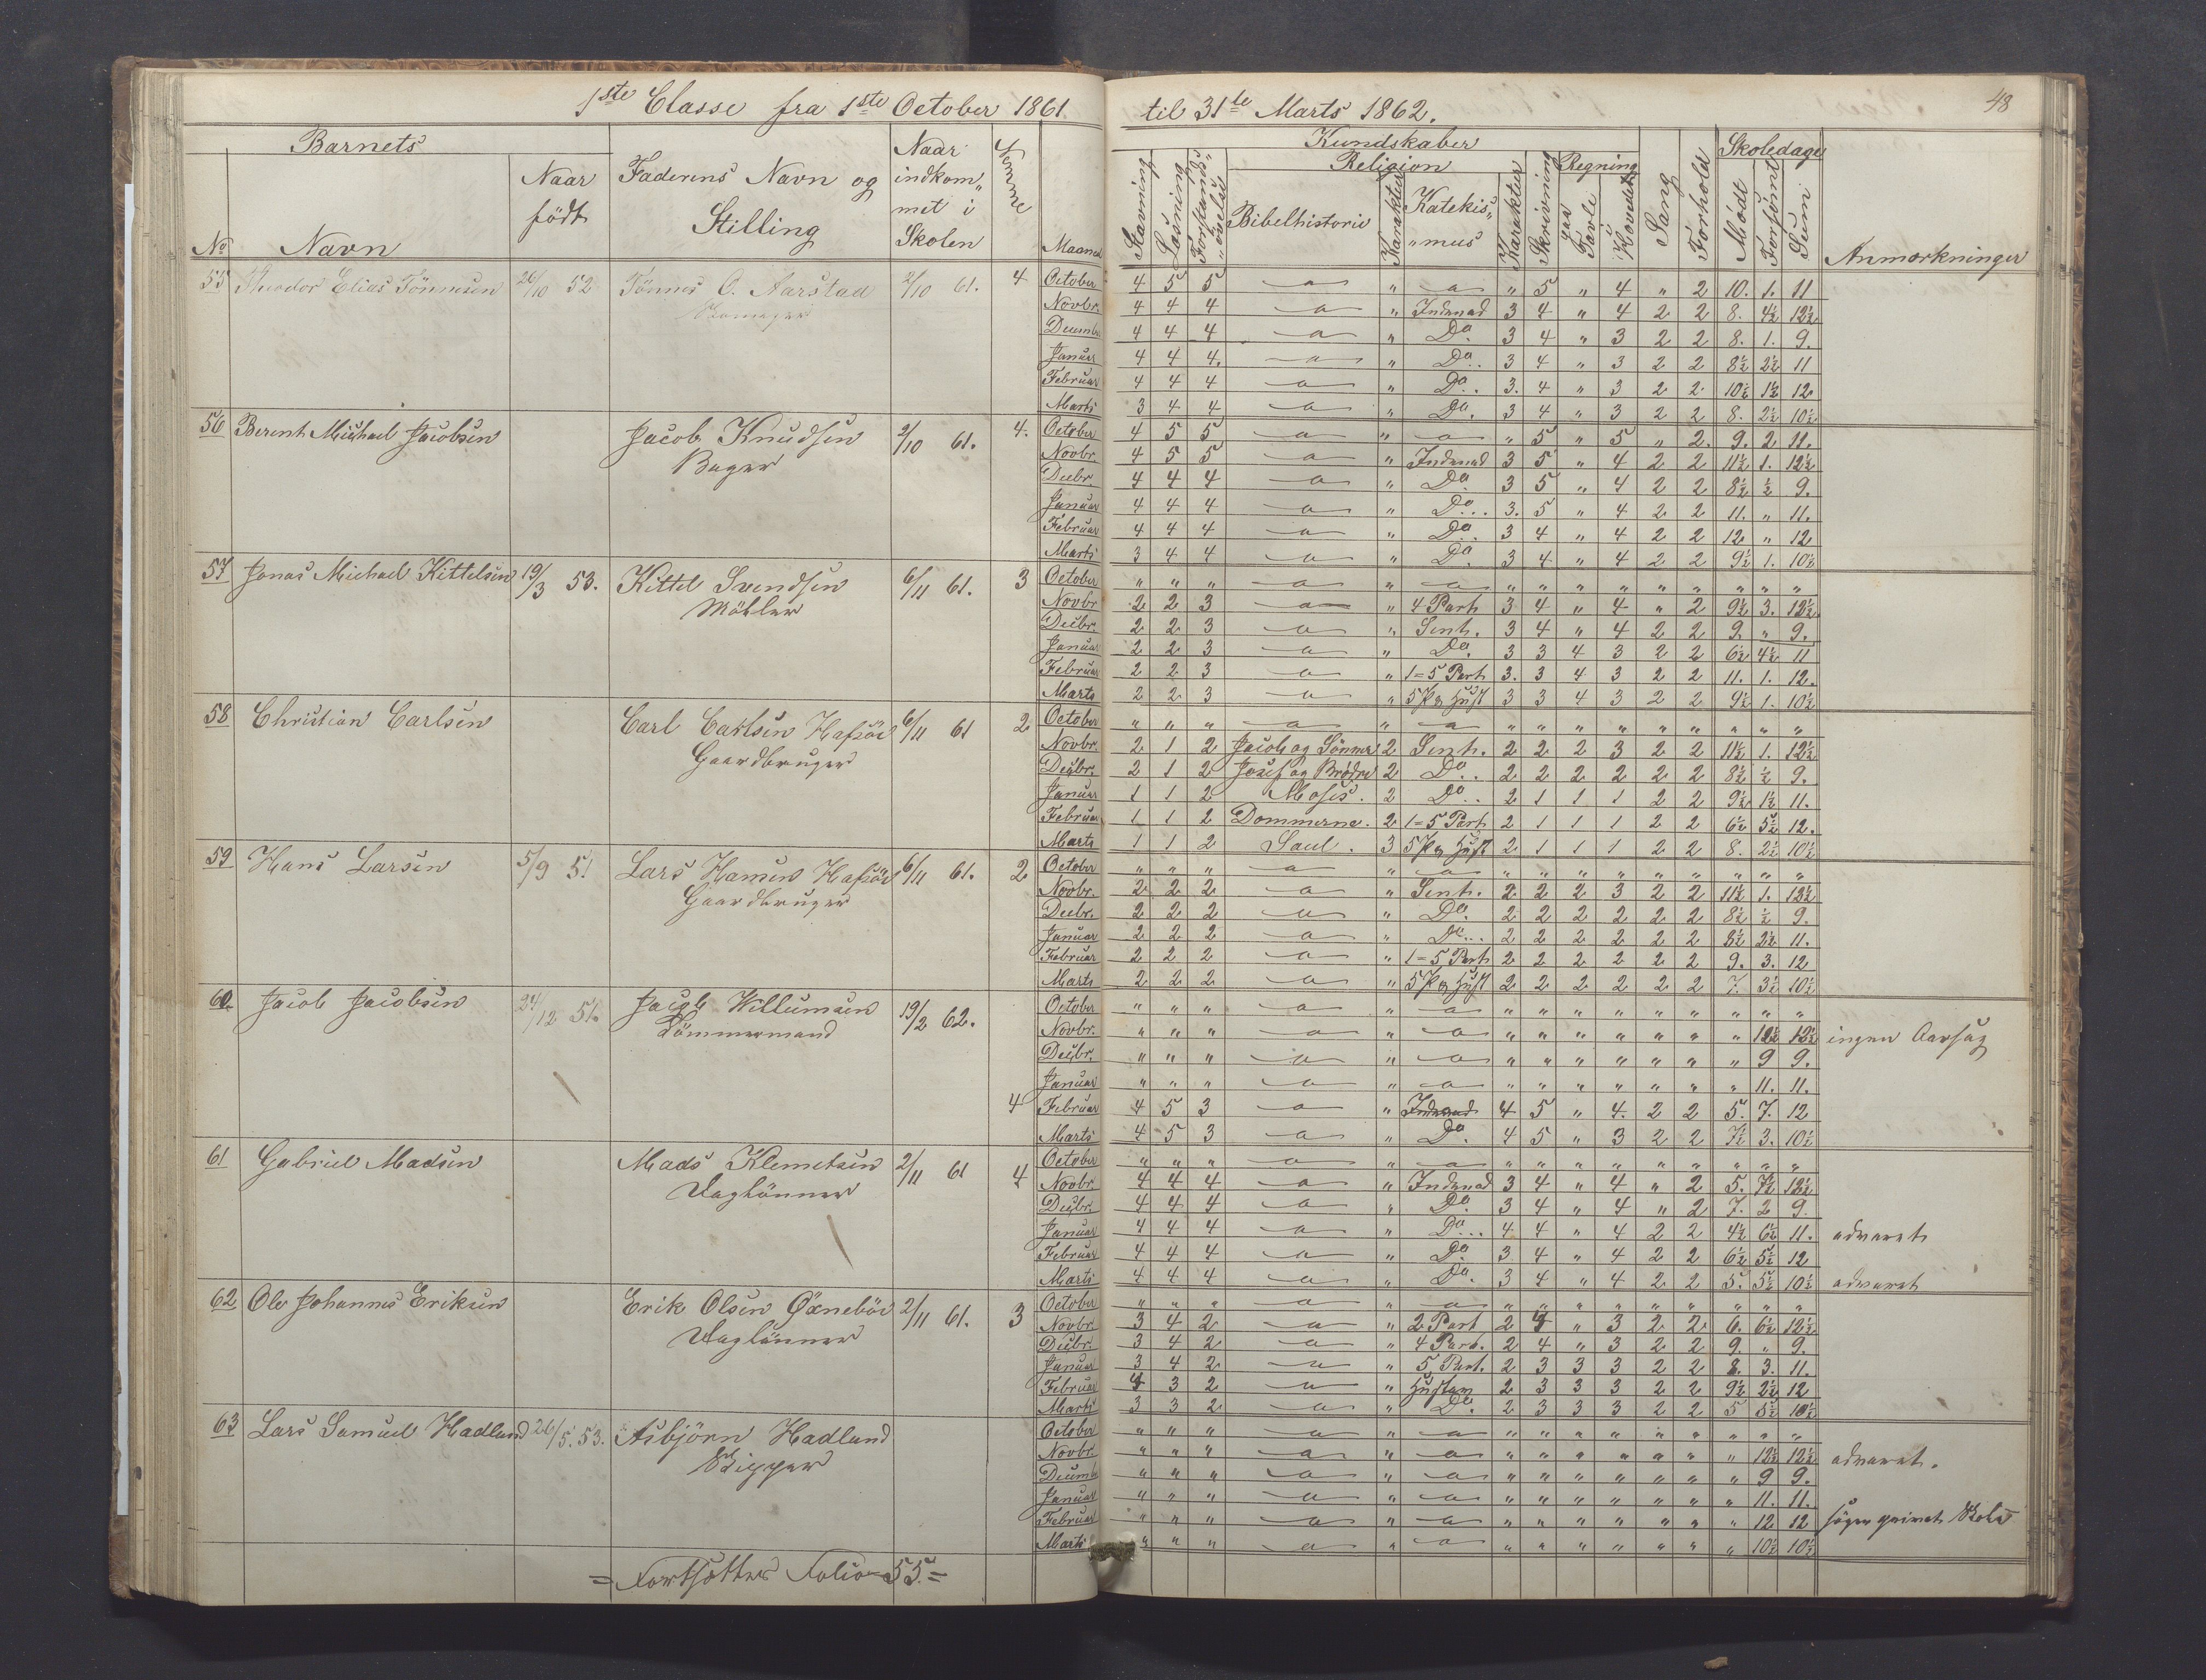 1ste Classe fra 1ste October 1861 til 31te Marts 1862.
48
Barnets
No Navn Naar født Faderens Navn og Stilling Naar indkom„met i Skolen Evne Maaned
Kundskaber
Religion Regning Skoledage
Stavning Læsning Forstands„øvelse Bibelhistorie Karakter Katekis„mus Karakter Skrivning paa Tavle i Hovedet Sang Forhold Mødt Forsømt Sum Anmærkninger
55 Theodor Elias Tönnesen 26/10 52 Tönnes O. Aarstad 2/10 61. 4 October 4 5 5 „ „ 5 „ 4 „ 2 10. 1. 11
Novbr. 4 4 4 „ Indenad 3 4 „ 4 2 2 8. 4½ 12½
Decembr 4 4 4 „ Do. 3 4 „ 3 2 2 8. 1. 9.
Januar 4 4 4. „ Do.. 3 4 „ 3 2 2 8½ 2½ 11
Februar 4 4 4 „ Do.. 3. 4 „ 3 2 2 10½ 1½ 12
Marts 3 4 4 „ Do. 3 4 „ 3 2 2 8. 2½ 10½
56 Berent Michael Jacobsen Jacob Knudsen 2/10 61. 4. October 4 5 5 „ „ 5 „ 5 „ 2. 9. 2 11.
Bager Novbr. 4 5 5 „ Indenad 3 5 „ 4 2 2 11½ 1. 12½
Decbr. 4 4 4 „ Do. 3 5 „ 4 2 2 8½ ½ 9.
Januar 4 4 4 „ Do... 3. 5 „ 4 2 2 11. „ 11.
Februar 4 4 4 „ Do.. 3 4 „ 4 2 2 12 „ 12
Marts 3 4 4 „ Do. 3 4 „ 4 2 2 9½ 1. 10½
57 Jonas Michael Kittelsen 19/3 53. Kittel Svendsen 6/11 61. 3 October „ „ „ „ „ „ „ „ „ „ „ „ „
Møhler Novbr 2 2 3 „ 4 Part 3 4 „ 4 „ 2 9½ 3. 12½
Decbr. 2 2 3 „ Senh. 3 4 „ 4 2 2 9. „ 9.
Januar 2 2 3 „ Do. 3 3 4 3 2 2 6½ 4½ 11
Februar 2 2 3 „ 1=5 Part 3. 3 4 3 2 2 11. 1. 12.
Marts 2 2 3 „ 3 3 4 3 2 2 9½ 1. 10½
58 Christian Carlsen Carl Carlsen Hafsöe 6/11 61 2 October „ „ „ „ „ „ „ „ „ „ „ „ „
Gaardbruger Novbr. 2 1 2 Jacob og Sönner 2 Senh. 2 2 2 3 2 2 11½ 1. 12½
Decbr. 2 1 2 Josef og Brødre 2 Do.. 2 2 2 2 2 2 8½ ½ 9.
Januar 1 1 2 Moses. 2 Do.. 2 1 1 1 2 2 9½ 1½ 11.
Februar 1 1 2 Dommerne. 2 1=5 Part 2 1 1 1 2 2 6½ 5½ 12.
Marts 1 1 2 Saul. 3 2 1 1 1 2 2 8. 2½ 10½
59 Hans Larsen 5/9 51 Lars Hansen Hafsöe 6/11 61. 2 October „ „ „ „ „ „ „ „ „ „ „ „ „
Gaardbruger Novbr. 2 2 2 „ Senh. 2 2 2 3 2 2 11½ 1. 12½
Decbr. 2 2 2 „ Do. 2 2 2 2 2 2 8½ ½ 9.
Januar 2 2 2 „ Do... 2 2 2 2 2 2 8½ 2½ 11.
Februar 2 2 2 „ 1=5 Part 2 2 2 2 2 2 9. 3. 12
Marts 2 2 2 „ 2 2 2 2 2 2 7. 3½ 10½
60. Jacob Jacobsen 24/12 51. Jacob Willumsen 19/2 62. October „ „ „ „ „ „ „ „ „ „ „ „ „
Tömmermand Novbr. „ „ „ „ „ „ „ „ „ „ „ 12½ 12½ ingen Aarsag
Decbr. „ „ „ „ „ „ „ „ „ „ „ 9 9.
Januar „ „ „ „ „ „ „ „ „ „ „ 11. 11.
4 Februar 4 5 3 „ Indenad 4 5 „ 4. 2 2 5. 7. 12
Marts 4 5 3 „ Do. 4 5 „ 3 2 2 7½ 3. 10½
61 Gabriel Madsen Mads Klemetsen 2/11 61 4 October „ „ „ „ „ „ „ „ „ „ „ „ „
Daglönner Novbr. 4 4 4 „ Indenad 3 4 „ 4 „ 2 5. 7½ 12½
Decbr. 4 4 4 „ Do. 3 4 „ 4 „ 2 7. 2 9.
Januar 4 4 4 „ Do... 4 4 „ 4 2 2 4½ 6½ 11. advaret
Februar 4 4 4 „ Do. 3 4 „ 4 2 2 6½ 5½ 12
Marts 4 4 4 „ Do. 3 4 „ 4 2 2 5. 5½ 10½ advaret
62 Ole Johannes Eriksen Erik Olsen Øxnebøe 2/11 61. 3 October „ „ „ „ „ „ „ „ „ „ „ „ „
Daglönner Novbr. 3 4 2 „ 2 Part 2 4 „ 3 2 2 6. 6½ 12½
Decbr. 3 4 2 „ 4 Part. 2 4 „ 3 2 2 9. „ 9.
Januar 3 4 2 „ 5 Part. 2 3 3 3 2 2 8. 3. 11.
Februar 4 3 2 „ 2 3 3 3 2 2 9½ 2½ 12
Marts 3 3 2 „ Do. 2 3 3 3 2 2 5 5½ 10½
63 Lars Samuel Hadland 26/5. 53. Asbjörn Hadland October „ „ „ „ „ „ „ „ „ „ „ „ „
Skipper Novbr. „ „ „ „ „ „ „ „ „ „ „ 12½ 12½ advaret.
Decembr „ „ „ „ „ „ „ „ „ „ „ 9 9.
Januar „ „ „ „ „ „ „ „ „ „ „ 11. 11.
Februar „ „ „ „ „ „ „ „ „ „ „ 12 12 søger privat Skole
Marts „ „ „ „ „ „ „ „ „ „ „ 10½ 10½
= Fortsættes Folio 55. =